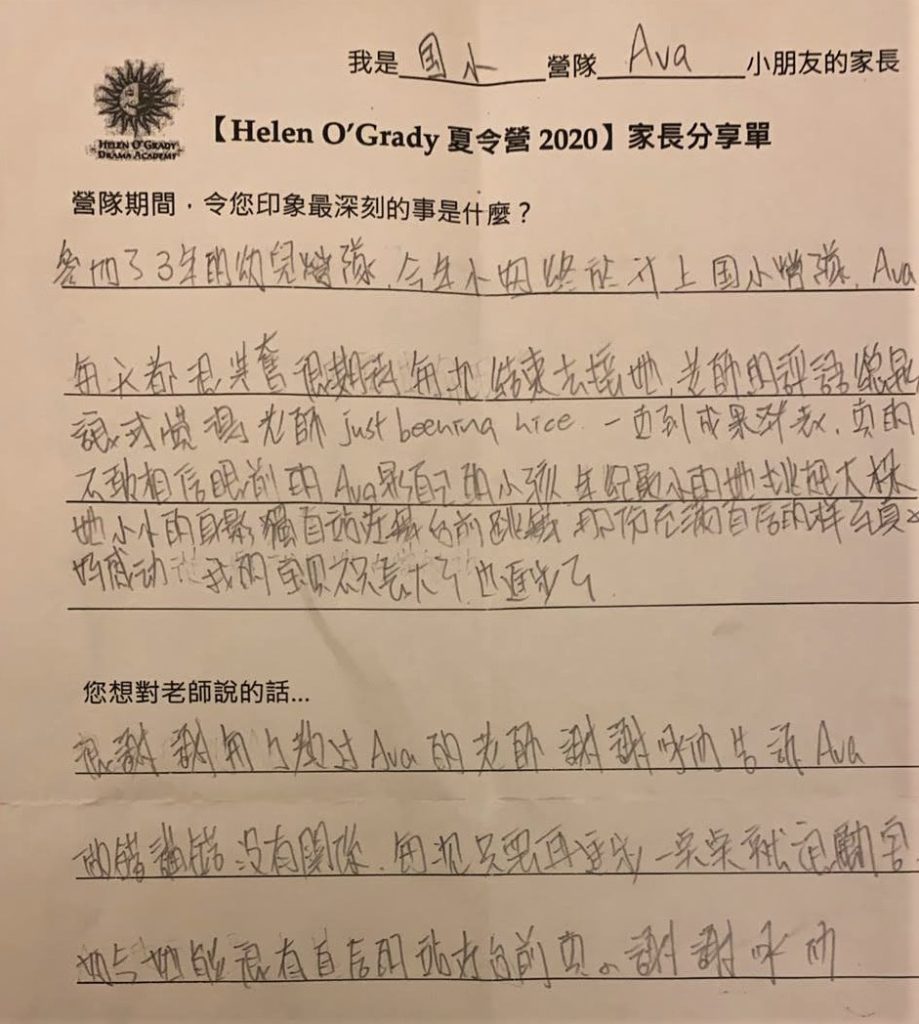 我是 国小 營隊 Ava 小朋友的家長
HELEN O'GRADY
DRAMA ACADEMY
【Helen O'Grady 夏令營 2020】家長分享單
營隊期間，令您印象最深刻的事是什麼？
參加了3年的幼兒營隊，今年小妞終於升上国小營隊，Ava
每天都很興奮很期待 每次結束去接她，老師的評語總是
讓我懷疑老師 just beening nice. 一直到成果發表，真的
不敢相信眼前的Ava是自己的小孩 年紀最小的她挑起大樑
她小小的身影獨自站在舞台前跳舞 那份充滿自信的样子真的
好感动 我的宝贝不只長大了也進步了
您想對老師說的話...
很謝謝每个教过Ava的老師 謝謝你们告訴Ava
做錯講錯沒有關係，每次只要再進步一桌桌就
她 她能很有自信的站在台前 真的謝謝你们